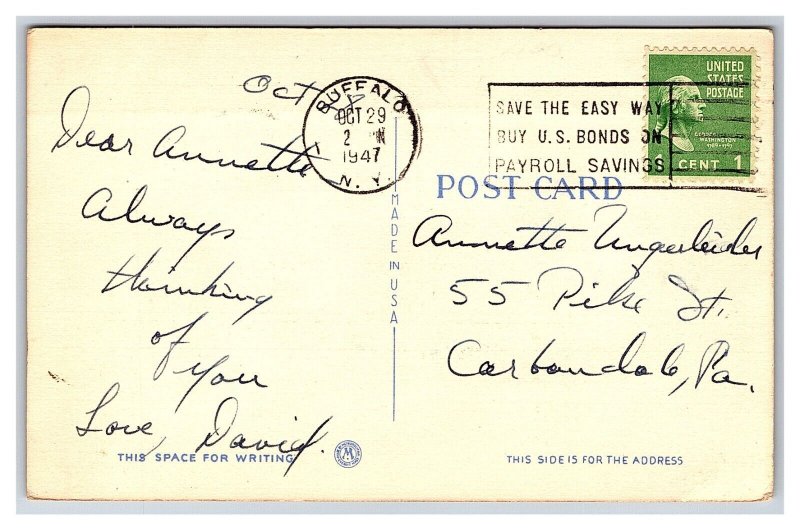 Oct
BUFFALO
OCT 29
2
1947
N. Y.
SAVE THE EASY WAY
BUY U.S. BONDS ON
PAYROLL SAVINGS
UNITED
STATES
POSTAGE
GEORGE
WASHINGTON
1789-1797
CENT 1
Dear Annette,
Always
thinking
of
you
Love, David.
THIS SPACE FOR WRITING
MADE IN USA
POST CARD
Annette Ungerleider
55 Pike St.
Carbondale, Pa.
THIS SIDE IS FOR THE ADDRESS